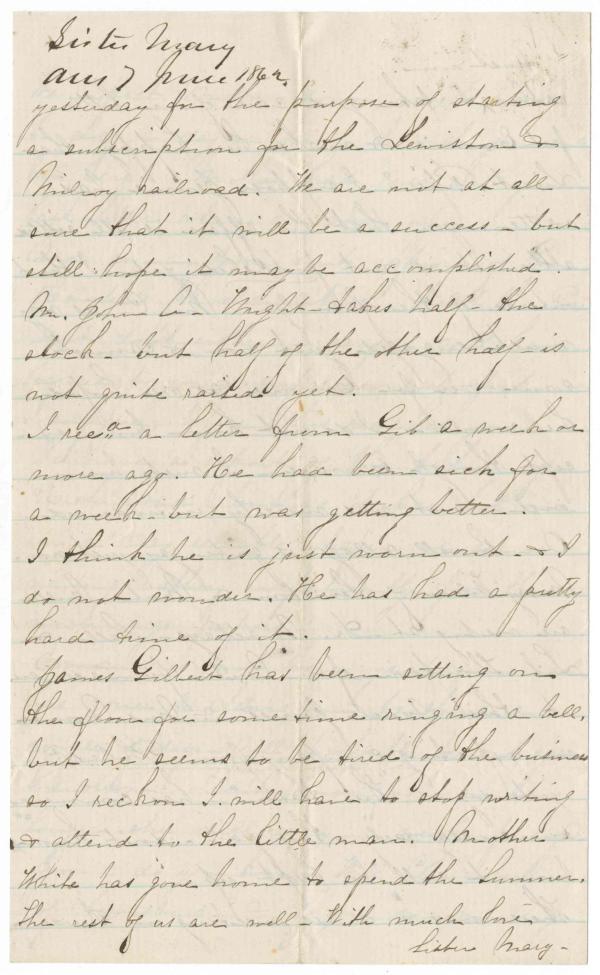 Sister Mary
ans 7 June 1862.
yesterday for the purpose of starting
a subscription for the Lewistown &
Milroy railroad. We are not at all
sure that it will be a success - but
still hope it may be accomplished.
Mr. John A - Wright - takes half - the
stock - but half of the other half - is
not quite raised yet.
I recd a letter from Gib a week or
more ago. He had been sick for
a week - but was getting better.
I think he is just worn out - & I
do not wonder. He has had a pretty
hard time of it.
James Gilbert has been sitting on
the floor for some time ringing a bell,
but he seems to be tired of the business
so I reckon I will have to stop writing
& attend to the little man. Mother
White has gone home to spend the Summer.
The rest of us are well - With much love
Sister Mary -